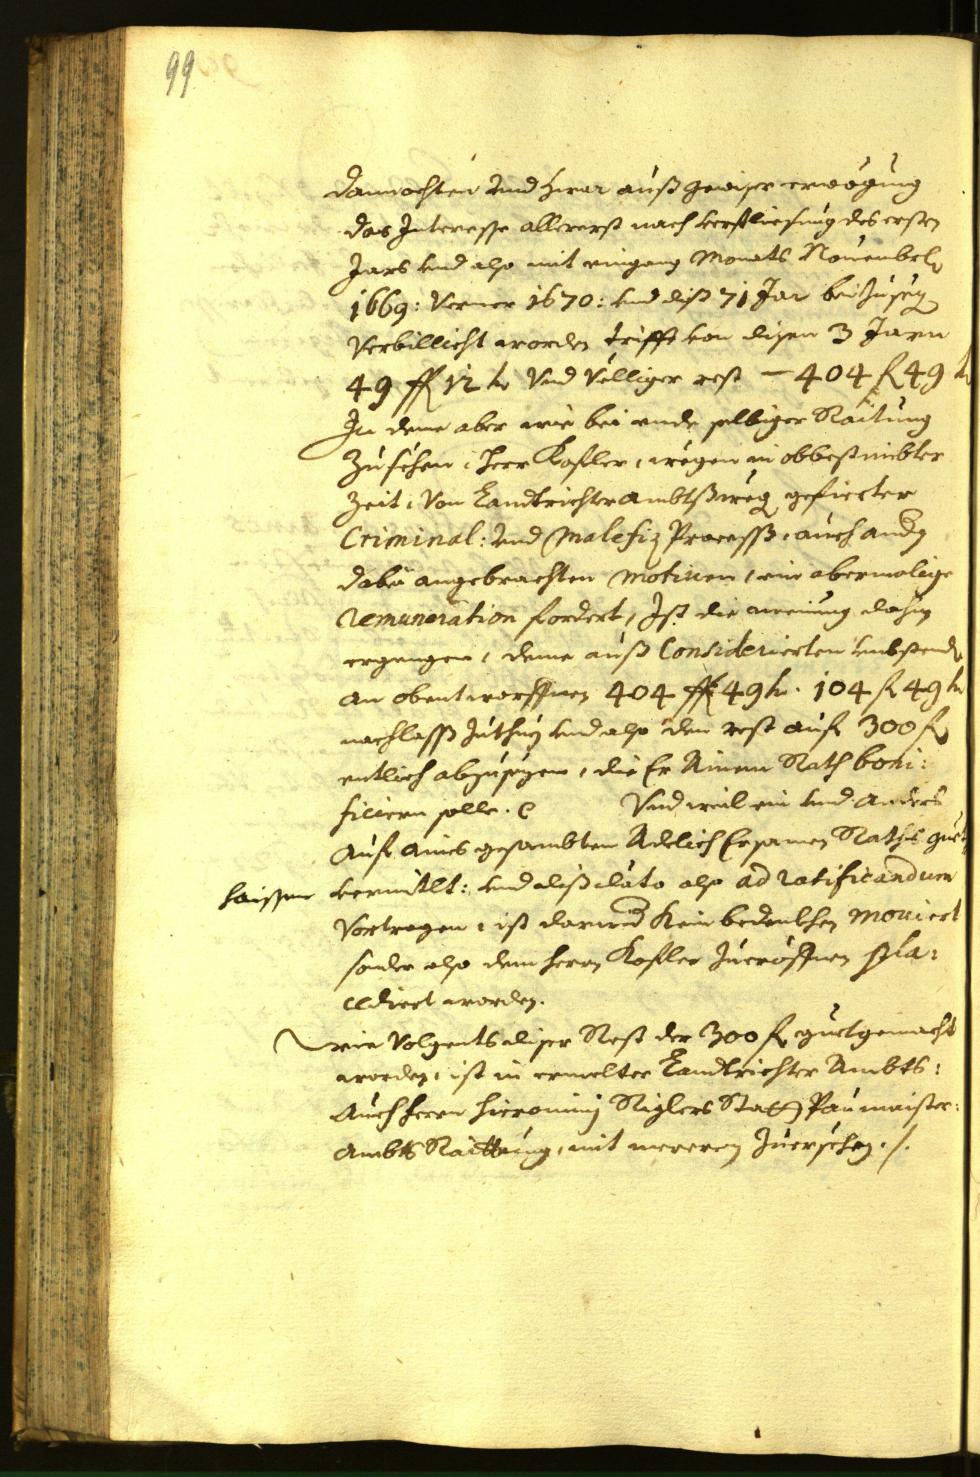 99
dannochten und zwar auß gewiser erwögung
das Interesse allererst nach verfliesung des ersten
Jars und also mit eingang Monats Nouember
1669: Verner 1670: und diß 71 Jar bei
verbillicht worden, trifft von disen 3 Jarn
49 fl 12 kr Und völliger rest — 404 fl 49 kr
In deme aber wie bei ende selbiger Raitung
zusehen, Herr Kofler, wegen in obbestimbter
Zeit, von Landtrichter Ambtßweg gefierter
Criminal: und Malefiz Processß, auch andr
dabei angebrachten Motiuen, ein abermalige
remuneration fordert, Ist die meinung dahin
ergangen, deme auß Considerierten umbstend
an obentworffnen 404 fl 49 kr. 104 fl 49 kr
nachlasß zuthun und also den rest auf 300 fl
entlich abzusezen, die Er Ainem Rath boni:
ficiern solle. Und weil ein und anders
auf aines gesambten Adelich Ersamen Raths guet
haissen vermitlt: und diß dato also ad ratificandum
vortragen, ist darwid kein bedenkhen mouiert
sonder also dem herrn Kofler zueröffnen pla:
cediert worden.
wie volgents diser Rest der 300 fl guetgemacht
worden, ist in ermelter Landtrichter Ambts:
Auch herrn Hieronimj Riglers Statt Paumaister:
Ambts Raittung, mit mererm zuersehen ./.